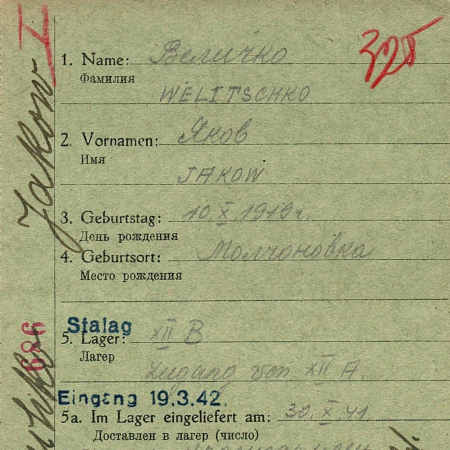 I
325
1. Name: Величко
Фамилия
WELITSCHKO
2. Vornamen: Яков
Имя
JAKOW
3. Geburtstag: 10.X.1919г.
День рождения
4. Geburtsort: Молчановка
Место рождения
Stalag
5. Lager: XII B
Лагер
Zugang von XII A.
Eingang 19.3.42.
5a. Im Lager eingeliefert am: 30.X.41.
Доставлен в лагер (число)
Jakow
686